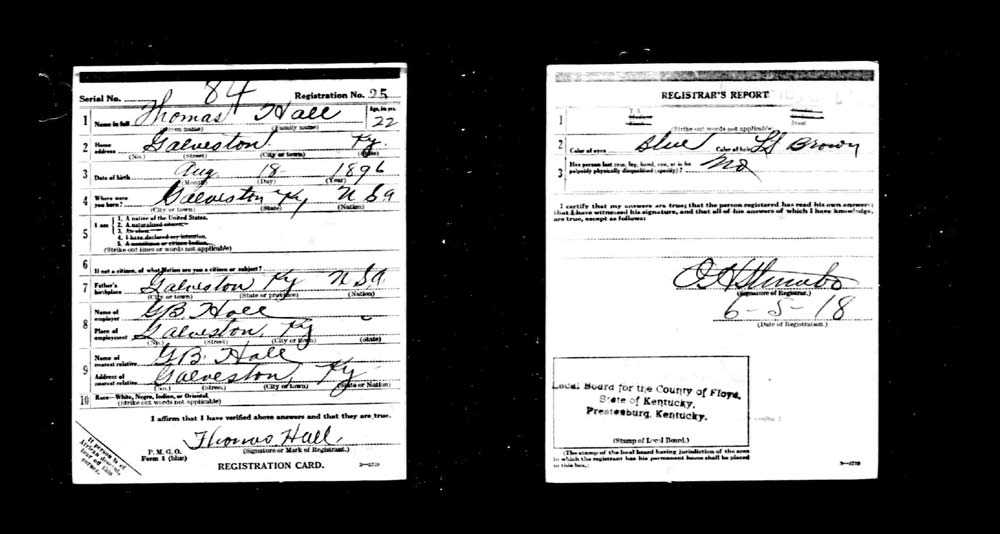 Serial No. 84 Registration No. 25
1 Name in full Thomas Hall Age, in yrs. 22
(Given name) (Family name)
2 Home address Galveston Ky
(No.) (Street) (City or town) (State)
3 Date of birth Aug 18 1896
(Month) (Day) (Year)
4 Where were you born? Galveston Ky USA
(City or town) (State) (Nation)
5 I am
1. A native of the United States.
2. A naturalized citizen.
3. An alien.
4. I have declared my intention.
5. A noncitizen or citizen Indian.
(Strike out lines or words not applicable)
6 If not a citizen, of what Nation are you a citizen or subject?
7 Father's birthplace Galveston Ky USA
(City or town) (State or province) (Nation)
8 Name of employer GB Hall
Place of employment Galveston, Ky
(No.) (Street) (City or town) (State)
9 Name of nearest relative GB. Hall
Address of nearest relative Galveston, Ky
(No.) (Street) (City or town) (State or Nation)
10 Race—White, Negro, Indian, or Oriental.
(Strike out words not applicable)
I affirm that I have verified above answers and that they are true.
Thomas Hall.
P. M. G. O.
Form 1 (blue)
(Signature or Mark of Registrant.)
REGISTRATION CARD.
If person is of African descent, tear off this corner.
REGISTRAR'S REPORT
1
(Strike out words not applicable)
2 Color of eyes Blue Color of hair Lt Brown
3 Has person lost arm, leg, hand, eye, or is he palpably physically disqualified (specify)? No
I certify that my answers are true; that the person registered has read his own answers;
that I have witnessed his signature, and that all of his answers of which I have knowledge,
are true, except as follows:
(Signature of Registrar.)
6-5-18
(Date of Registration.)
Local Board for the County of Floyd,
State of Kentucky,
Prestonburg, Kentucky.
(Stamp of Local Board.)
(The stamp of the local board having jurisdiction of the area
in which the registrant has his permanent home shall be placed
in this box.)